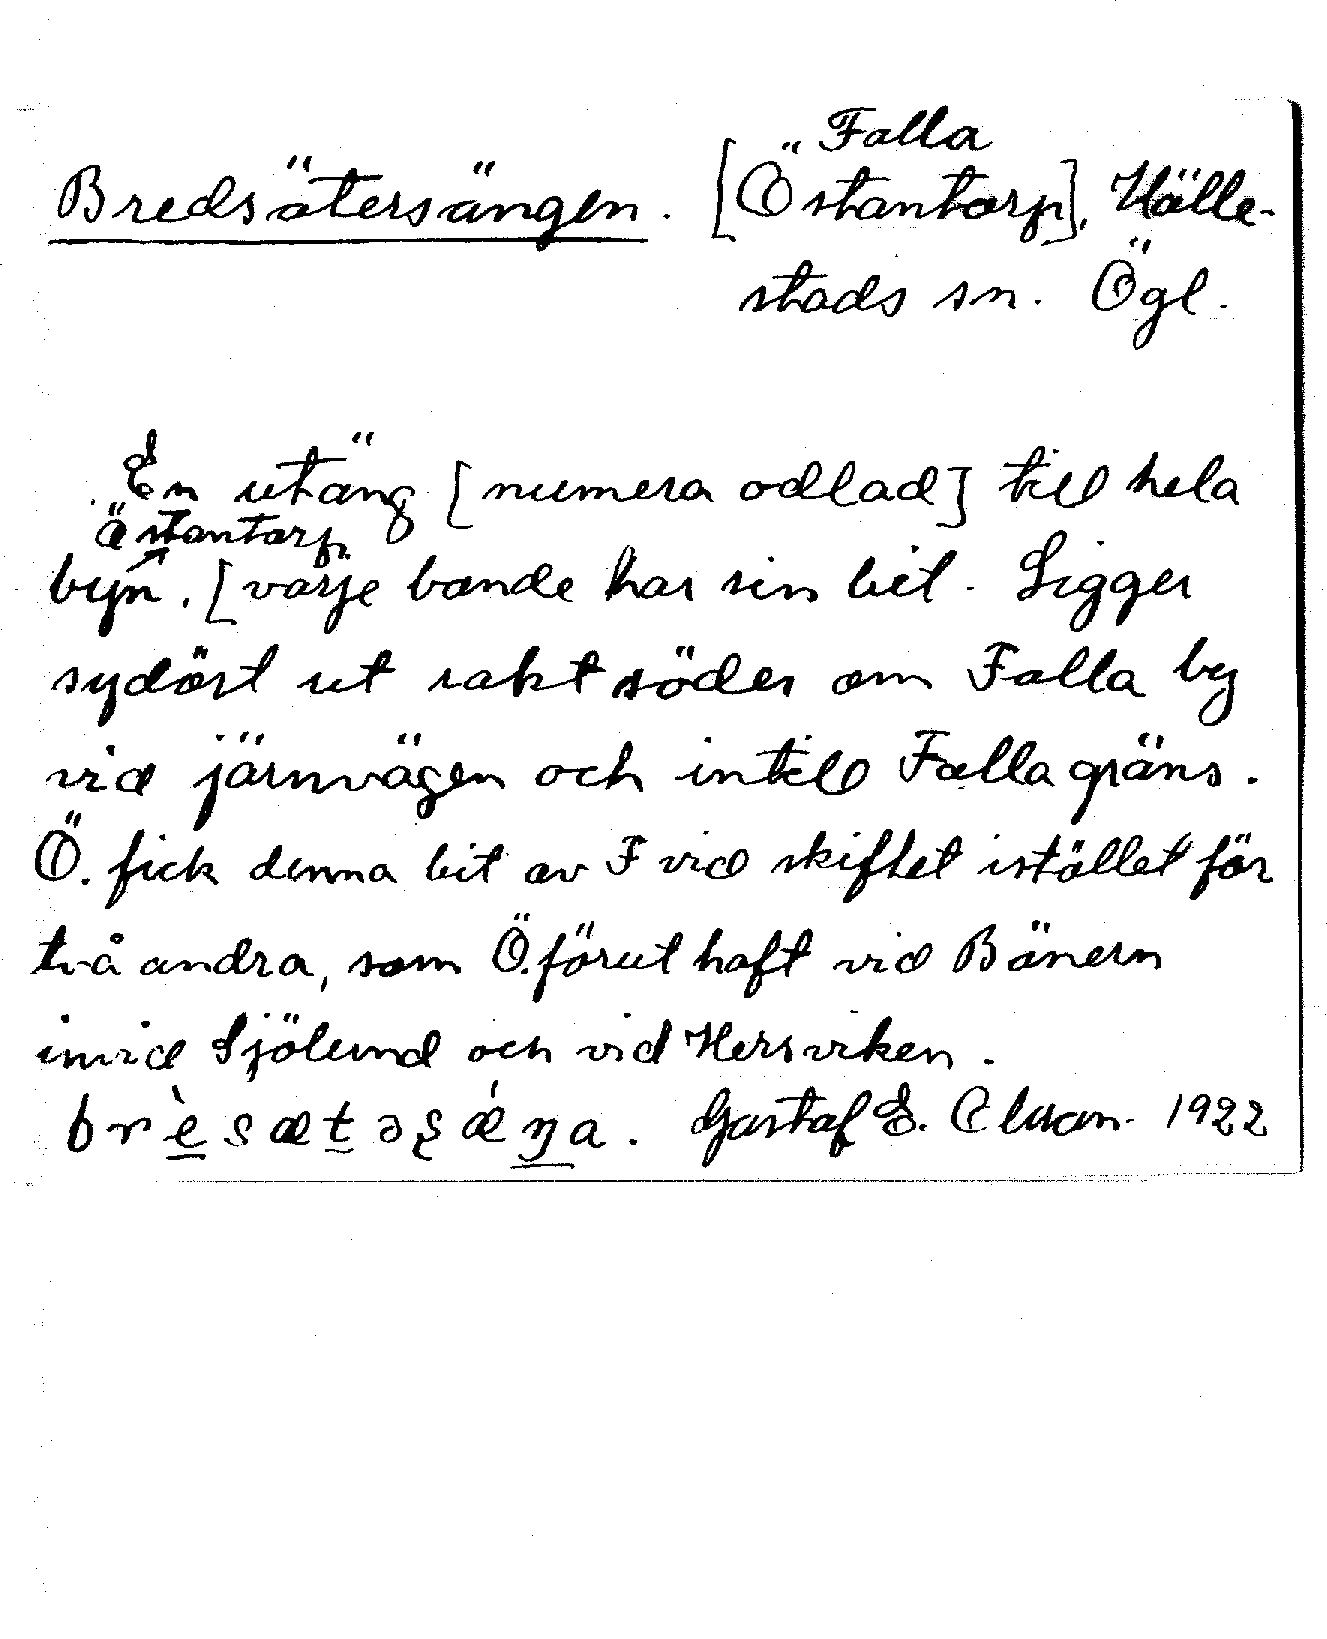 Falla
Bredsätersängen. [Östantorp], Hälle-
stads sn. Ögl.
En utäng [numera odlad] till hela
Östantorp
byn. [varje bonde har sin bit. Ligger
sydöst ut rakt söder om Falla by
vid järnvägen och intill Falla gräns.
Ö. fick denna bit av F vid skiftet istället för
två andra, som Ö. förut haft vid Bänern
invid Sjölund och vid Hersviken.
brèsætəʂǽŋa. Gustaf E. Olsson. 1922